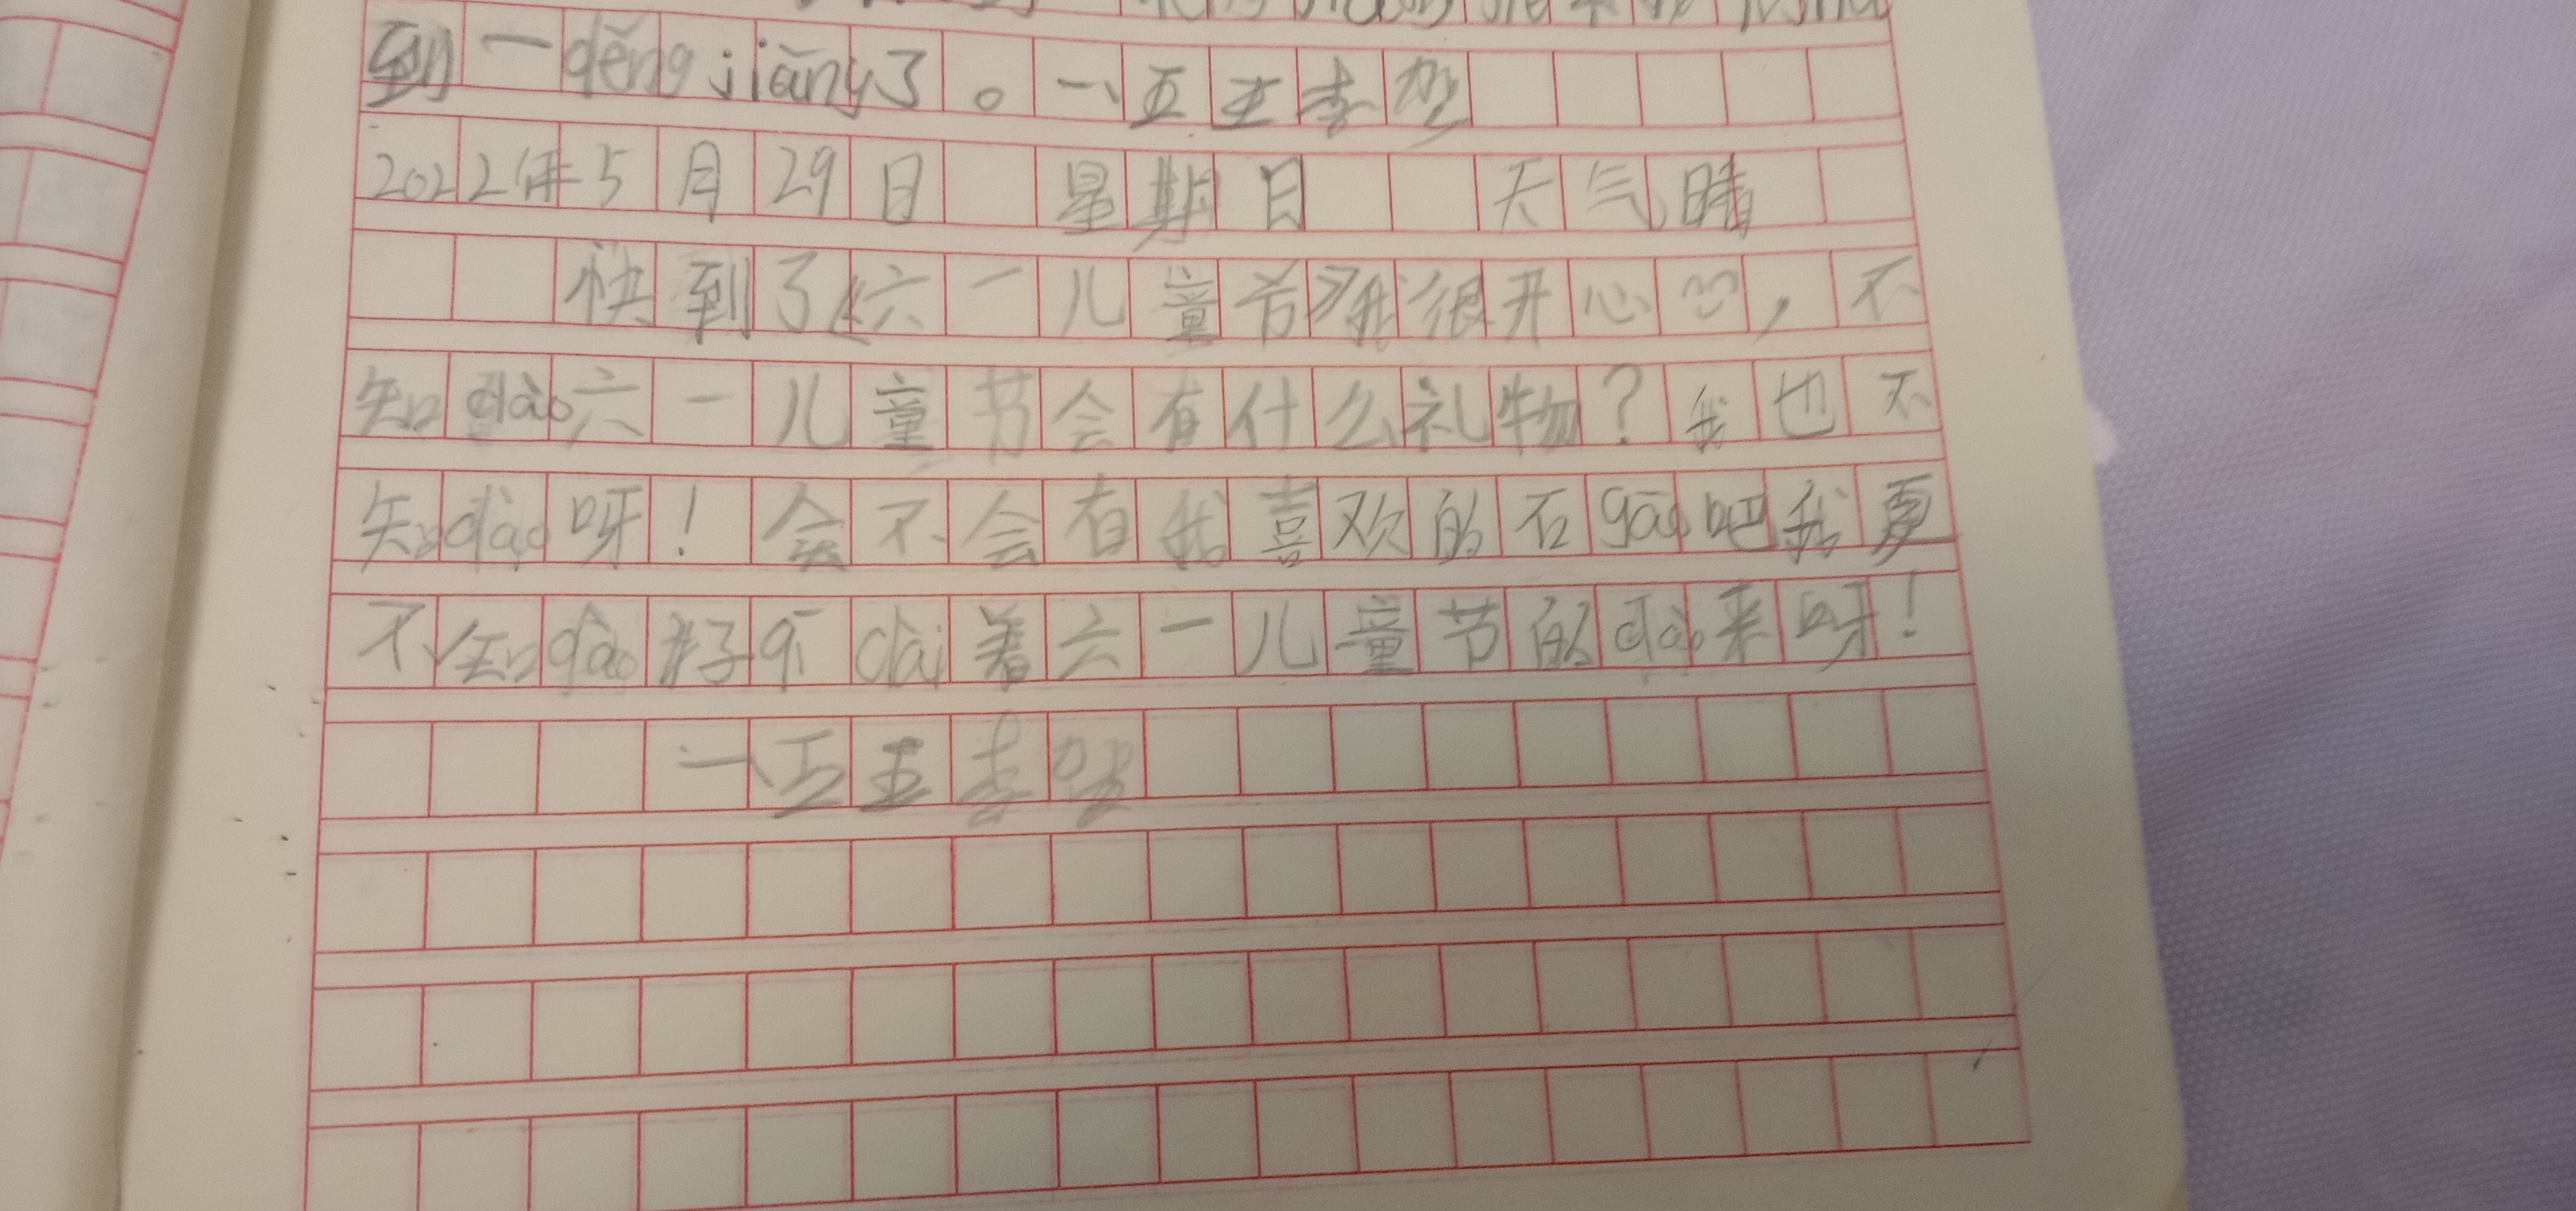 到一děngjiǎng了。一、五王
2022年5月29日 星期日 天气晴
快到了《六一儿童节》我很开心，不
知dào六一儿童节会有什么礼物？我也不
知dào呀！会不会有我喜欢的石gāo吧我更
不知dào好qī dài着六一儿童节的dào来呀！
一、五王